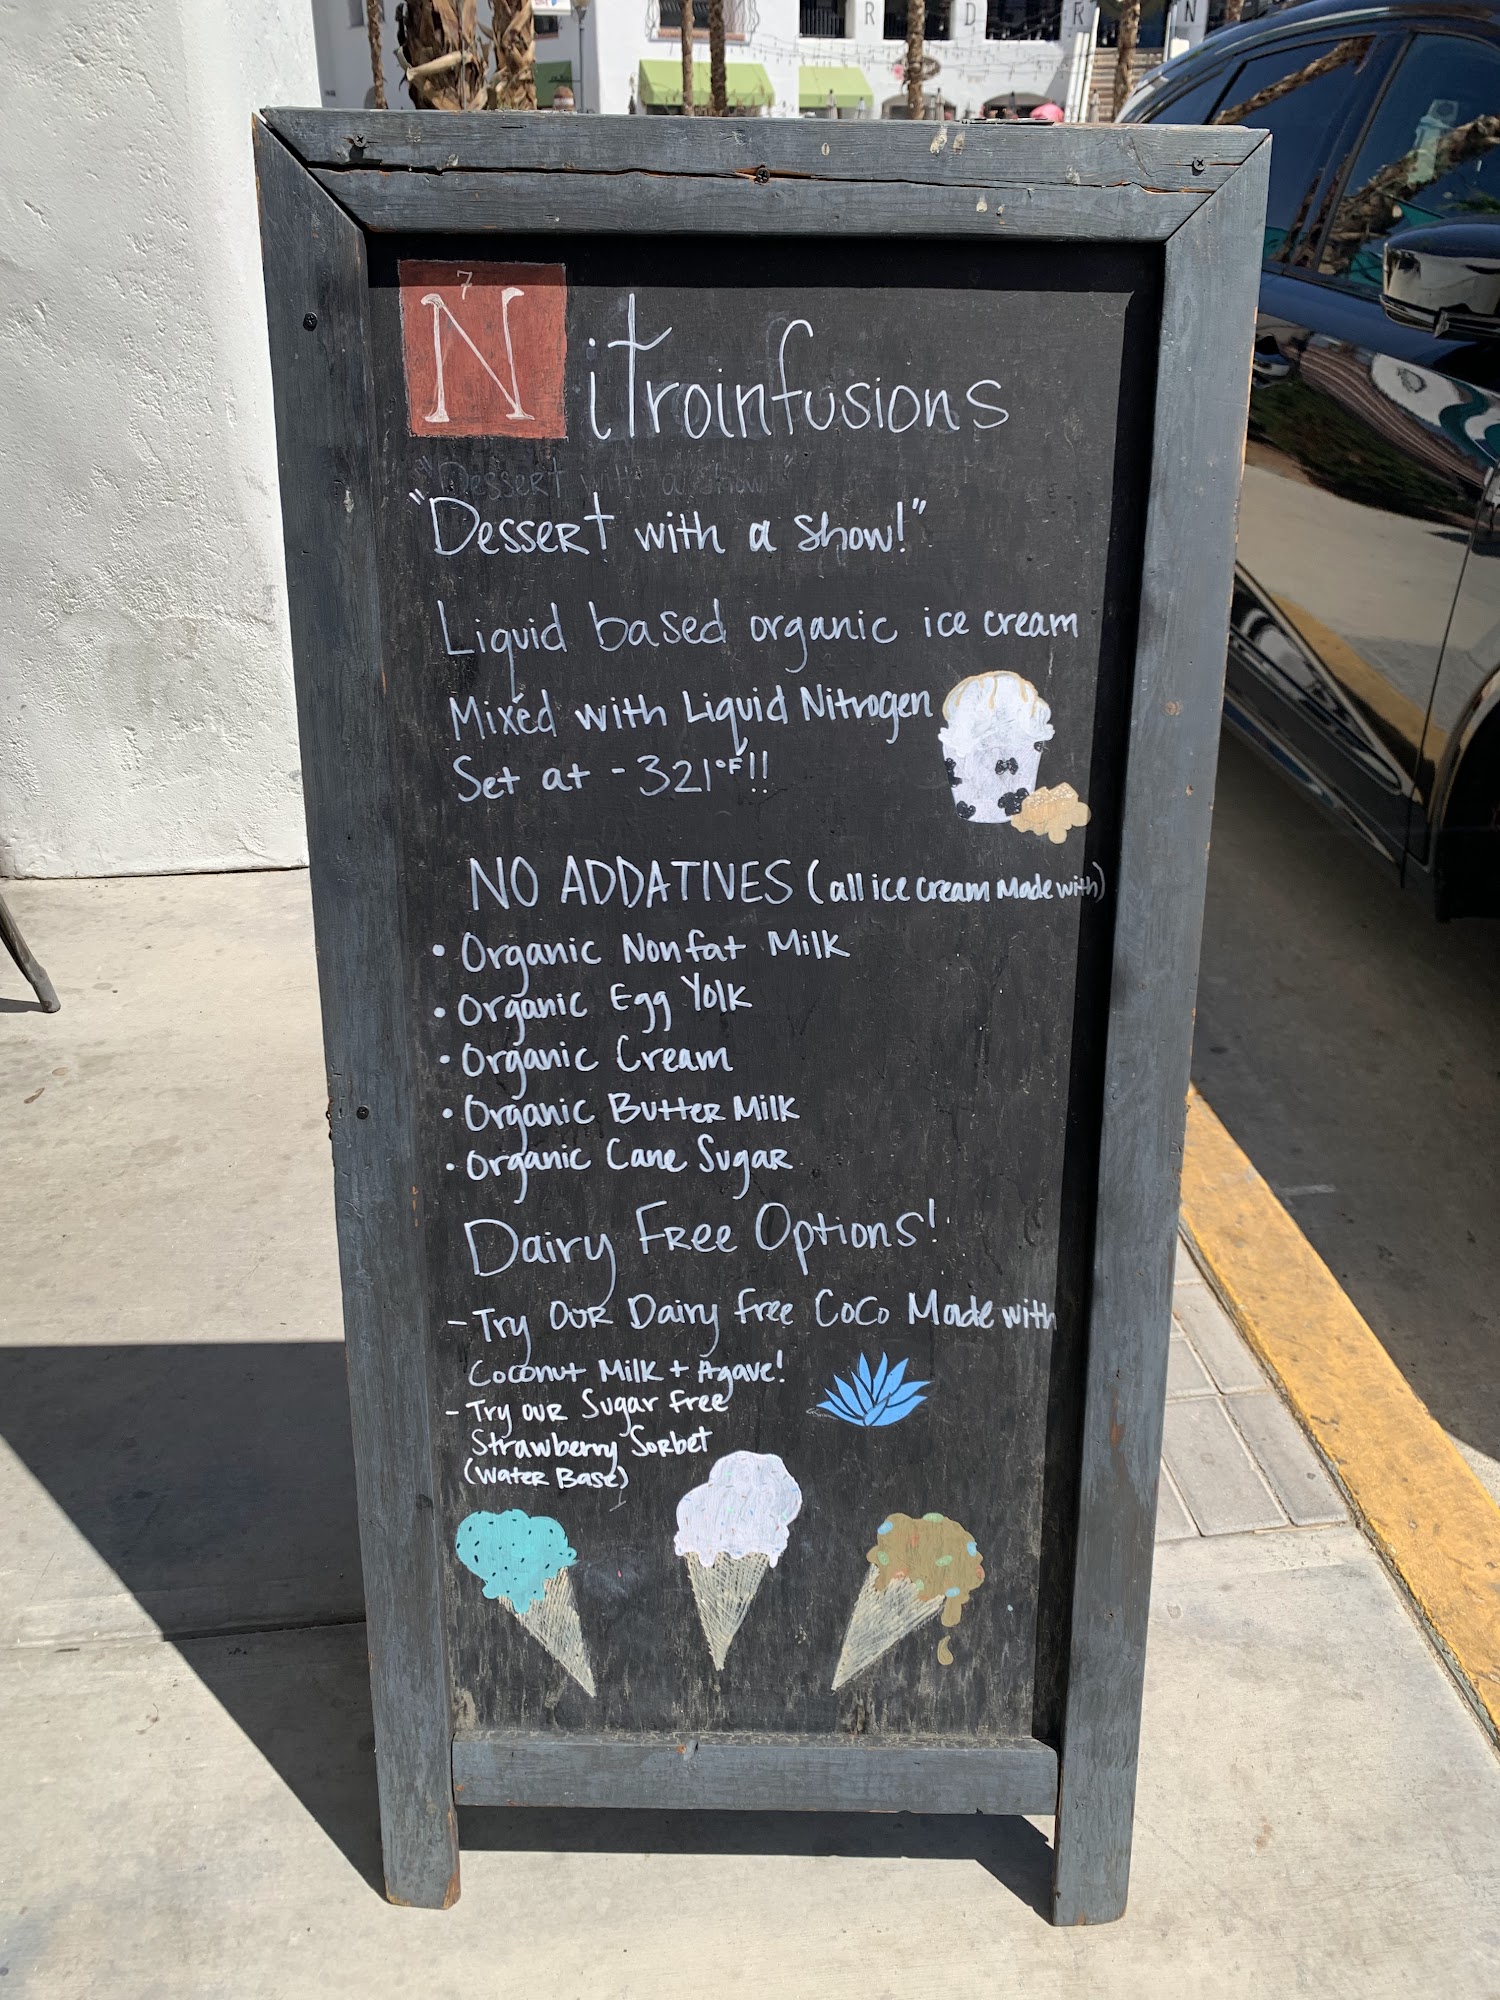 R D R N
7
Nitroinfusions
"Dessert with a show!"
"Dessert with a show!"
Liquid based organic ice cream
Mixed with Liquid Nitrogen
Set at -321°F!!
NO ADDATIVES (all ice cream Made with)
• Organic Nonfat Milk
• Organic Egg Yolk
• Organic Cream
• Organic Butter Milk
• Organic Cane Sugar
Dairy Free Options!
- Try our Dairy free CoCo Made with
Coconut Milk + Agave!
- Try our Sugar Free
Strawberry Sorbet
(Water Base)